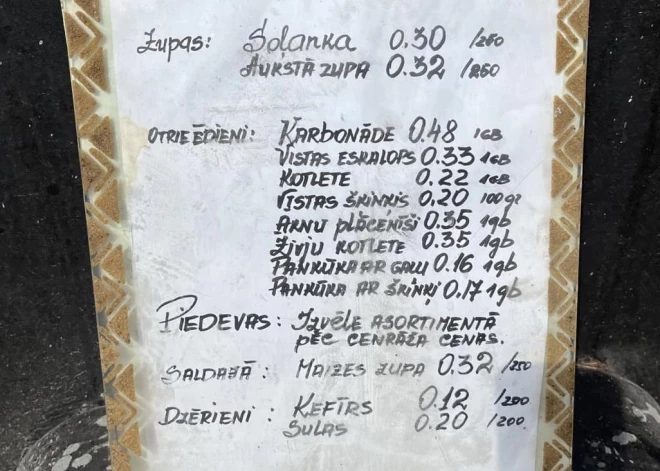 Zupas: Soļanka 0.30 /250
Aukstā zupa 0.32 /250
Otrie ēdieni: Karbonāde 0.48 1GB
Vistas eskalops 0.33 1GB
Kotlete 0.22 1GB
Vistas šķiņķis 0.20 100gr
Aknu plācenīši 0.35 1gb
Zivju kotlete 0.35 1gb
Pankūka ar gaļu 0.16 1gb
Pankūka ar šķiņķi 0.17 1gb
Piedevas: Izvēle asortimentā
pēc cenrāža cenas.
Saldajā: Maizes zupa 0.32 /250
Dzērieni: Kefīrs 0.12 /200
Sulas 0.20 /200